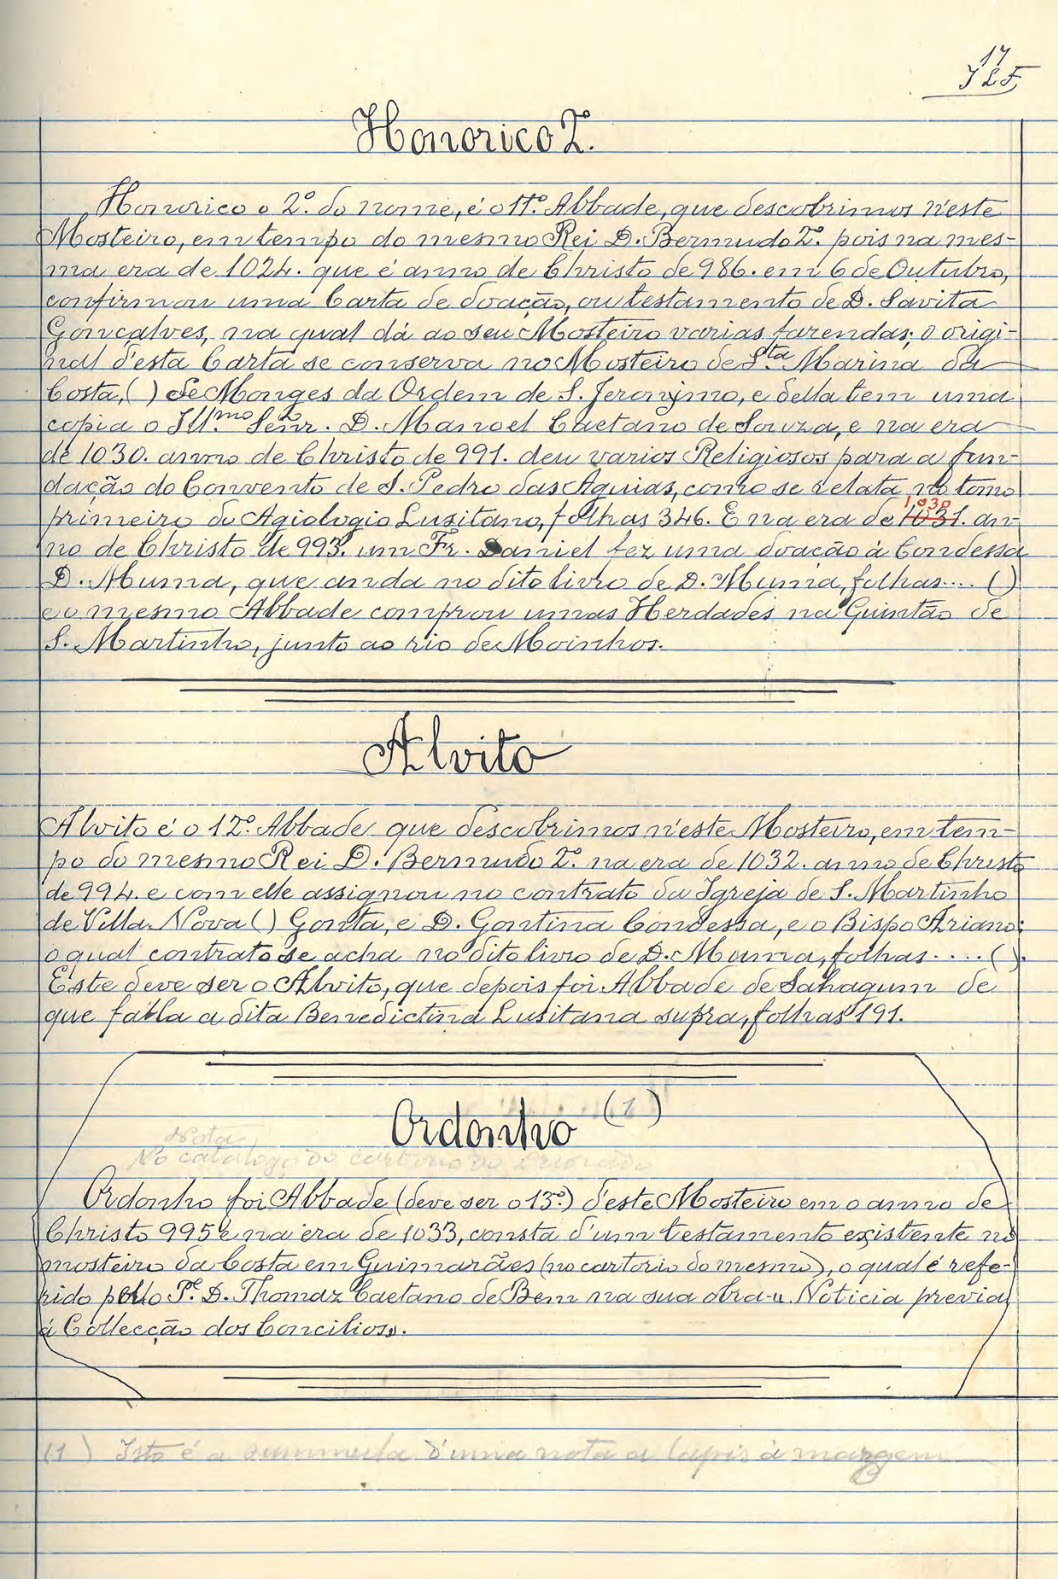 17
Honorico 2º.
Honorico o 2º. do nome, é o 11º. Abbade, que descobrimos n'este
Mosteiro, em tempo do mesmo Rei D. Bermudo 2º. pois na mes-
ma era de 1024. que é anno de Christo de 986. em 6 de Outubro,
confirmou uma Carta de doação, ou testamento de D. Savita
Gonçalves, na qual dá ao seu Mosteiro varias fazendas; o origi-
nal d'esta Carta se conserva no Mosteiro de Sta. Marina da
Costa, ( ) de Monges da Ordem de S. Jeronymo, e della tem uma
copia o Illmo. Senr. D. Manoel Caetano de Souza, e na era
de 1030. anno de Christo de 991. deu varios Religiosos para a fun-
dação do Convento de S. Pedro das Aguias, como se relata no tomo
primeiro do Agiologio Lusitano, folhas 346. E na era de 1031. an-
1030
no de Christo de 993. um Fr. Daniel fez uma doação à Condessa
D. Muma, que anda no dito livro de D. Muma, folhas.... ( )
e o mesmo Abbade comprou umas Herdades na Quintão de
S. Martinho, junto ao rio de Moinhos.
Alvito
Alvito é o 12º. Abbade que descobrimos n'este Mosteiro, em tem-
po do mesmo Rei D. Bermudo 2º. na era de 1032. anno de Christo
de 994. e com elle assignou no contrato da Igreja de S. Martinho
de Villa Nova ( ) Gonta, e D. Gontina Condessa, e o Bispo Ariano;
o qual contrato se acha no dito livro de D. Muma, folhas.... ( ).
Este deve ser o Alvito, que depois foi Abbade de Sahagum de
que falla a dita Benedictina Lusitana supra, folhas 191.
Ordonho (1)
Nota
No catalogo do cartorio do
Ordonho foi Abbade (deve ser o 13º.) d'este Mosteiro em o anno de
Christo 995 e na era de 1033, consta d'um testamento existente no
mosteiro da Costa em Guimarães (no cartorio do mesmo), o qual é refe-
rido pello Pe. D. Thomaz Caetano de Bem na sua obra "Noticia previa
á Collecção dos Concilios".
(1) Isto é a summula d'uma nota a lapis à margem